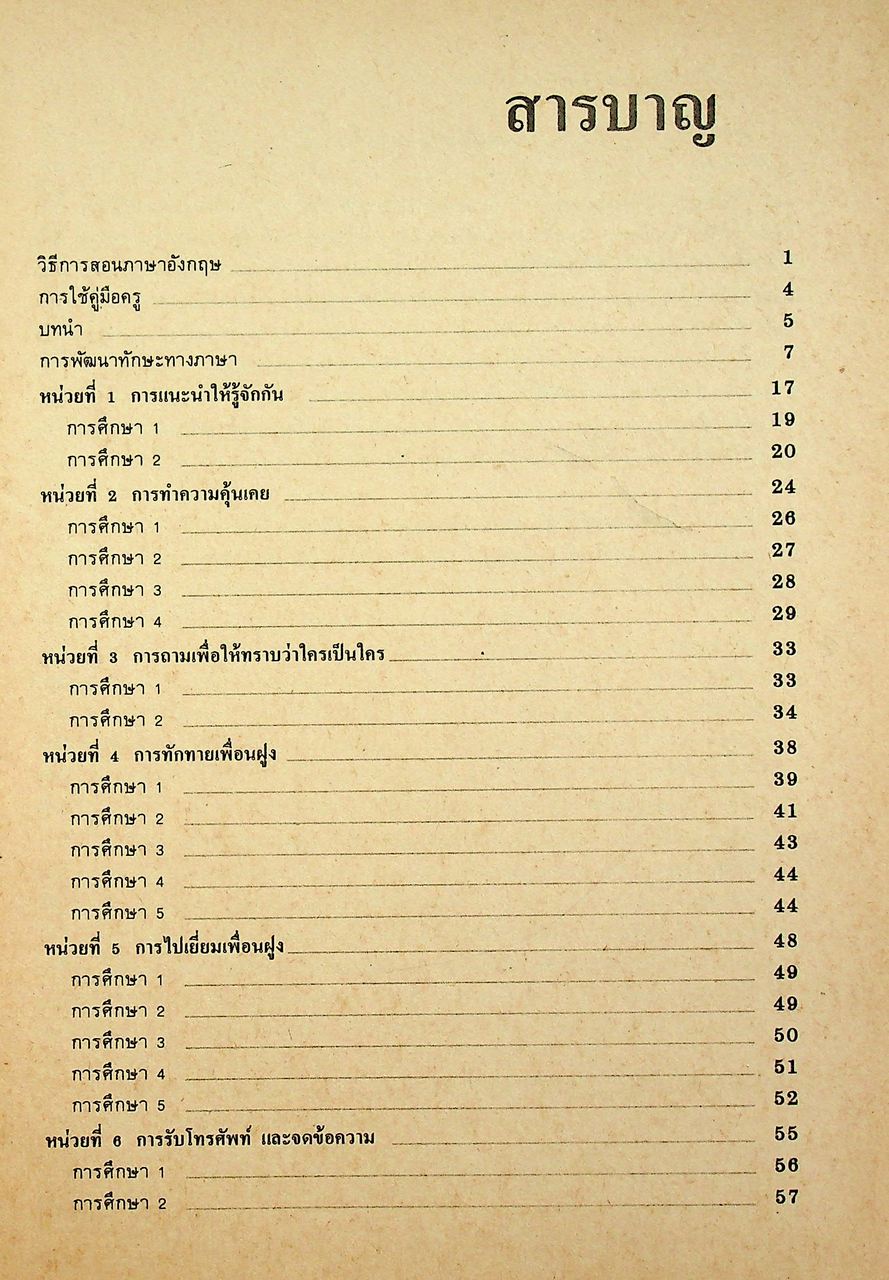 สารบาญ
วิธีการสอนภาษาอังกฤษ 1
การใช้คู่มือครู 4
บทนำ 5
การพัฒนาทักษะทางภาษา 7
หน่วยที่ 1 การแนะนำให้รู้จักกัน 17
การศึกษา 1 19
การศึกษา 2 20
หน่วยที่ 2 การทำความคุ้นเคย 24
การศึกษา 1 26
การศึกษา 2 27
การศึกษา 3 28
การศึกษา 4 29
หน่วยที่ 3 การถามเพื่อให้ทราบว่าใครเป็นใคร 33
การศึกษา 1 33
การศึกษา 2 34
หน่วยที่ 4 การทักทายเพื่อนฝูง 38
การศึกษา 1 39
การศึกษา 2 41
การศึกษา 3 43
การศึกษา 4 44
การศึกษา 5 44
หน่วยที่ 5 การไปเยี่ยมเพื่อนฝูง 48
การศึกษา 1 49
การศึกษา 2 49
การศึกษา 3 50
การศึกษา 4 51
การศึกษา 5 52
หน่วยที่ 6 การรับโทรศัพท์ และจดข้อความ 55
การศึกษา 1 56
การศึกษา 2 57